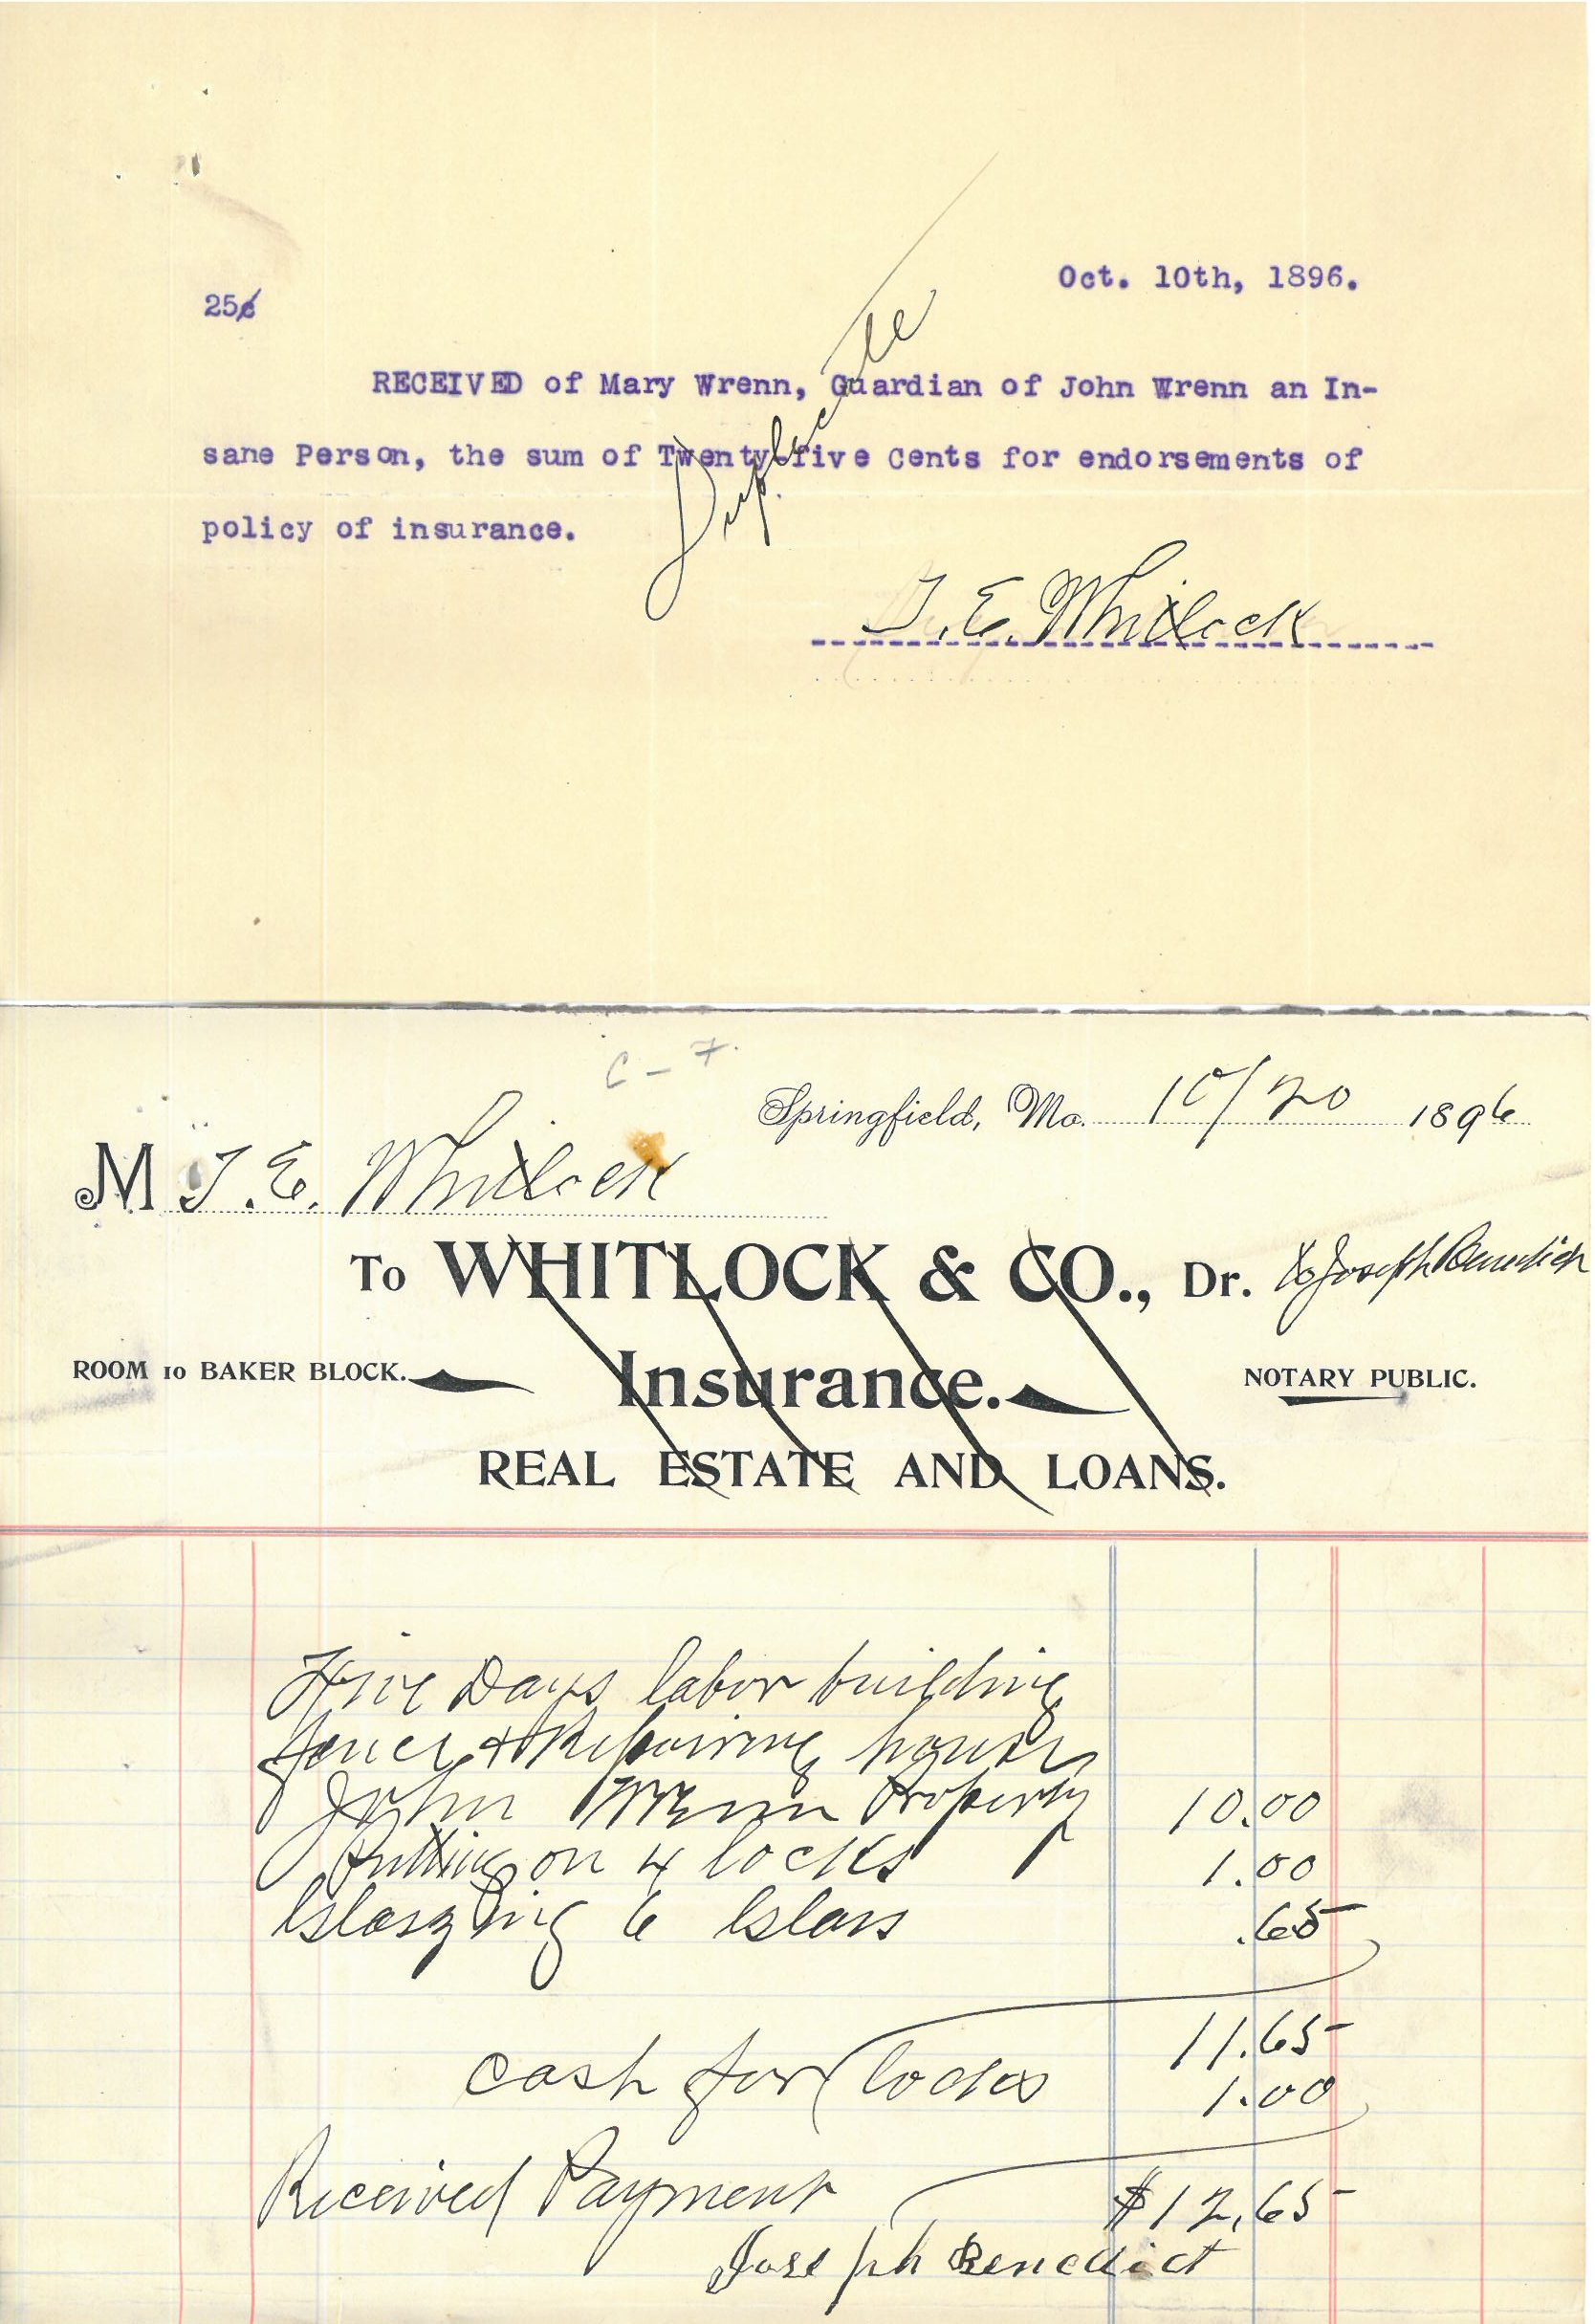 Oct. 10th, 1896.
25¢
RECEIVED of Mary Wrenn, Guardian of John Wrenn an In-
sane Person, the sum of Twenty-five Cents for endorsements of
policy of insurance.
Duplicate
T. E. Whitlock
C - 7.
Springfield, Mo. 10/20 1896
M T. E. Whitlock
To WHITLOCK & CO., Dr. to Joseph Benedict
ROOM 10 BAKER BLOCK. Insurance. NOTARY PUBLIC.
REAL ESTATE AND LOANS.
Five Days labor building
fence & Repairing house
John Wrenn Property 10.00
Putting on 4 locks 1.00
Glazing 6 Glass .65
11.65
cash for locks 1.00
Received Payment $12.65
Joseph Benedict